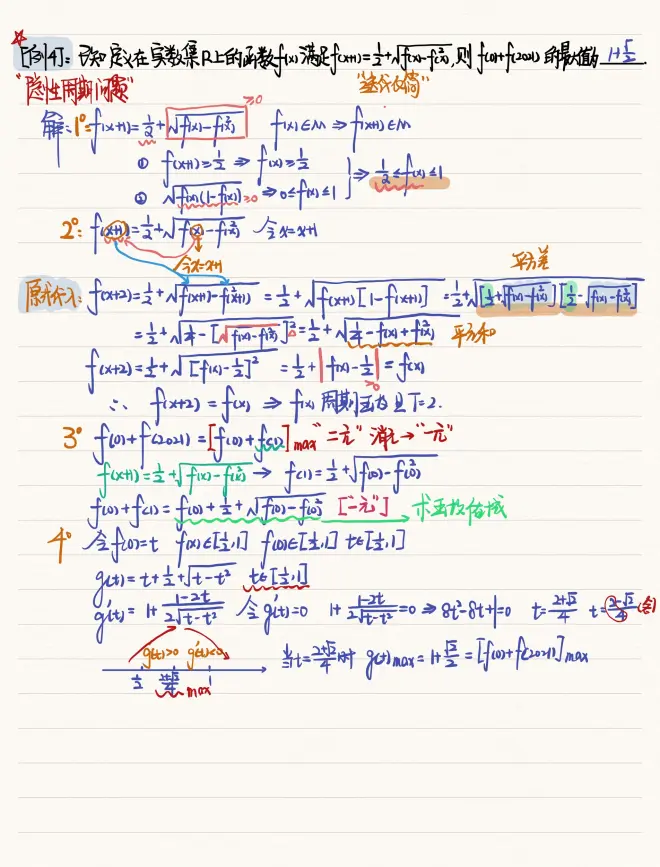 [例4]: 已知定义在实数集R上的函数f(x)满足f(x+1)=1/2+√(f(x)-f²(x)), 则 f(0)+f(2021) 的最大值为 1+√2/2.
"隐性周期问题" "迭代化简"
解: 1°: f(x+1)=1/2+√(f(x)-f²(x)) ≥0 f(x)∈M ⇒ f(x+1)∈M
① f(x+1)≥1/2 ⇒ f(x)≥1/2
② √(f(x)(1-f(x))) ≥0 ⇒ 0≤f(x)≤1 } ⇒ 1/2≤f(x)≤1
2°: f(x+1)=1/2+√(f(x)-f²(x)) 令x=x+1
令x=x+1 平方差
原式代入: f(x+2)=1/2+√(f(x+1)-f²(x+1)) =1/2+√(f(x+1)[1-f(x+1)]) =1/2+√([1/2+√(f(x)-f²(x))][1/2-√(f(x)-f²(x))])
=1/2+√(1/4-[√(f(x)-f²(x))]²)=1/2+√(1/4-f(x)+f²(x)) 平方和
f(x+2)=1/2+√([f(x)-1/2]²) =1/2+|f(x)-1/2| = f(x) ≥0
∴ f(x+2)=f(x) ⇒ f(x)周期函数且T=2.
3° f(0)+f(2021)=[f(0)+f(1)]max "二元" 消元→"一元"
f(x+1)=1/2+√(f(x)-f²(x)) → f(1)=1/2+√(f(0)-f²(0))
f(0)+f(1)=f(0)+1/2+√(f(0)-f²(0)) ["一元"] → 求函数值域
4° 令f(0)=t f(x)∈[1/2,1] f(0)∈[1/2,1] t∈[1/2,1]
g(t)=t+1/2+√(t-t²) t∈[1/2,1]
g'(t)=1+(1-2t)/(2√(t-t²)) 令g'(t)=0 1+(1-2t)/(2√(t-t²))=0 ⇒ 8t²-8t+1=0 t=(2+√2)/4 t=(2-√2)/4(舍)
g'(t)>0 g'(t)<0 当t=(2+√2)/4时 g(t)max=1+√2/2=[f(0)+f(2021)]max
1/2 (2+√2)/4 1
max